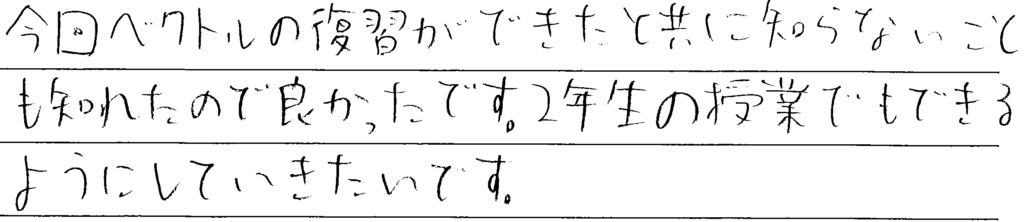 今回ベクトルの復習ができたと共に知らないこと
も知れたので良かったです。2年生の授業でもできる
ようにしていきたいです。